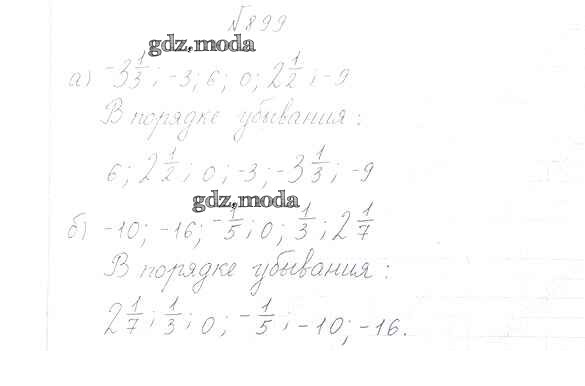 №899
gdz.moda
а) -3 1/3; -3; 6; 0; 2 1/2; -9
В порядке убывания:
6; 2 1/2; 0; -3; -3 1/3; -9
gdz.moda
б) -10; -16; -1/5; 0; 1/3; 2 1/7
В порядке убывания:
2 1/7; 1/3; 0; -1/5; -10; -16.